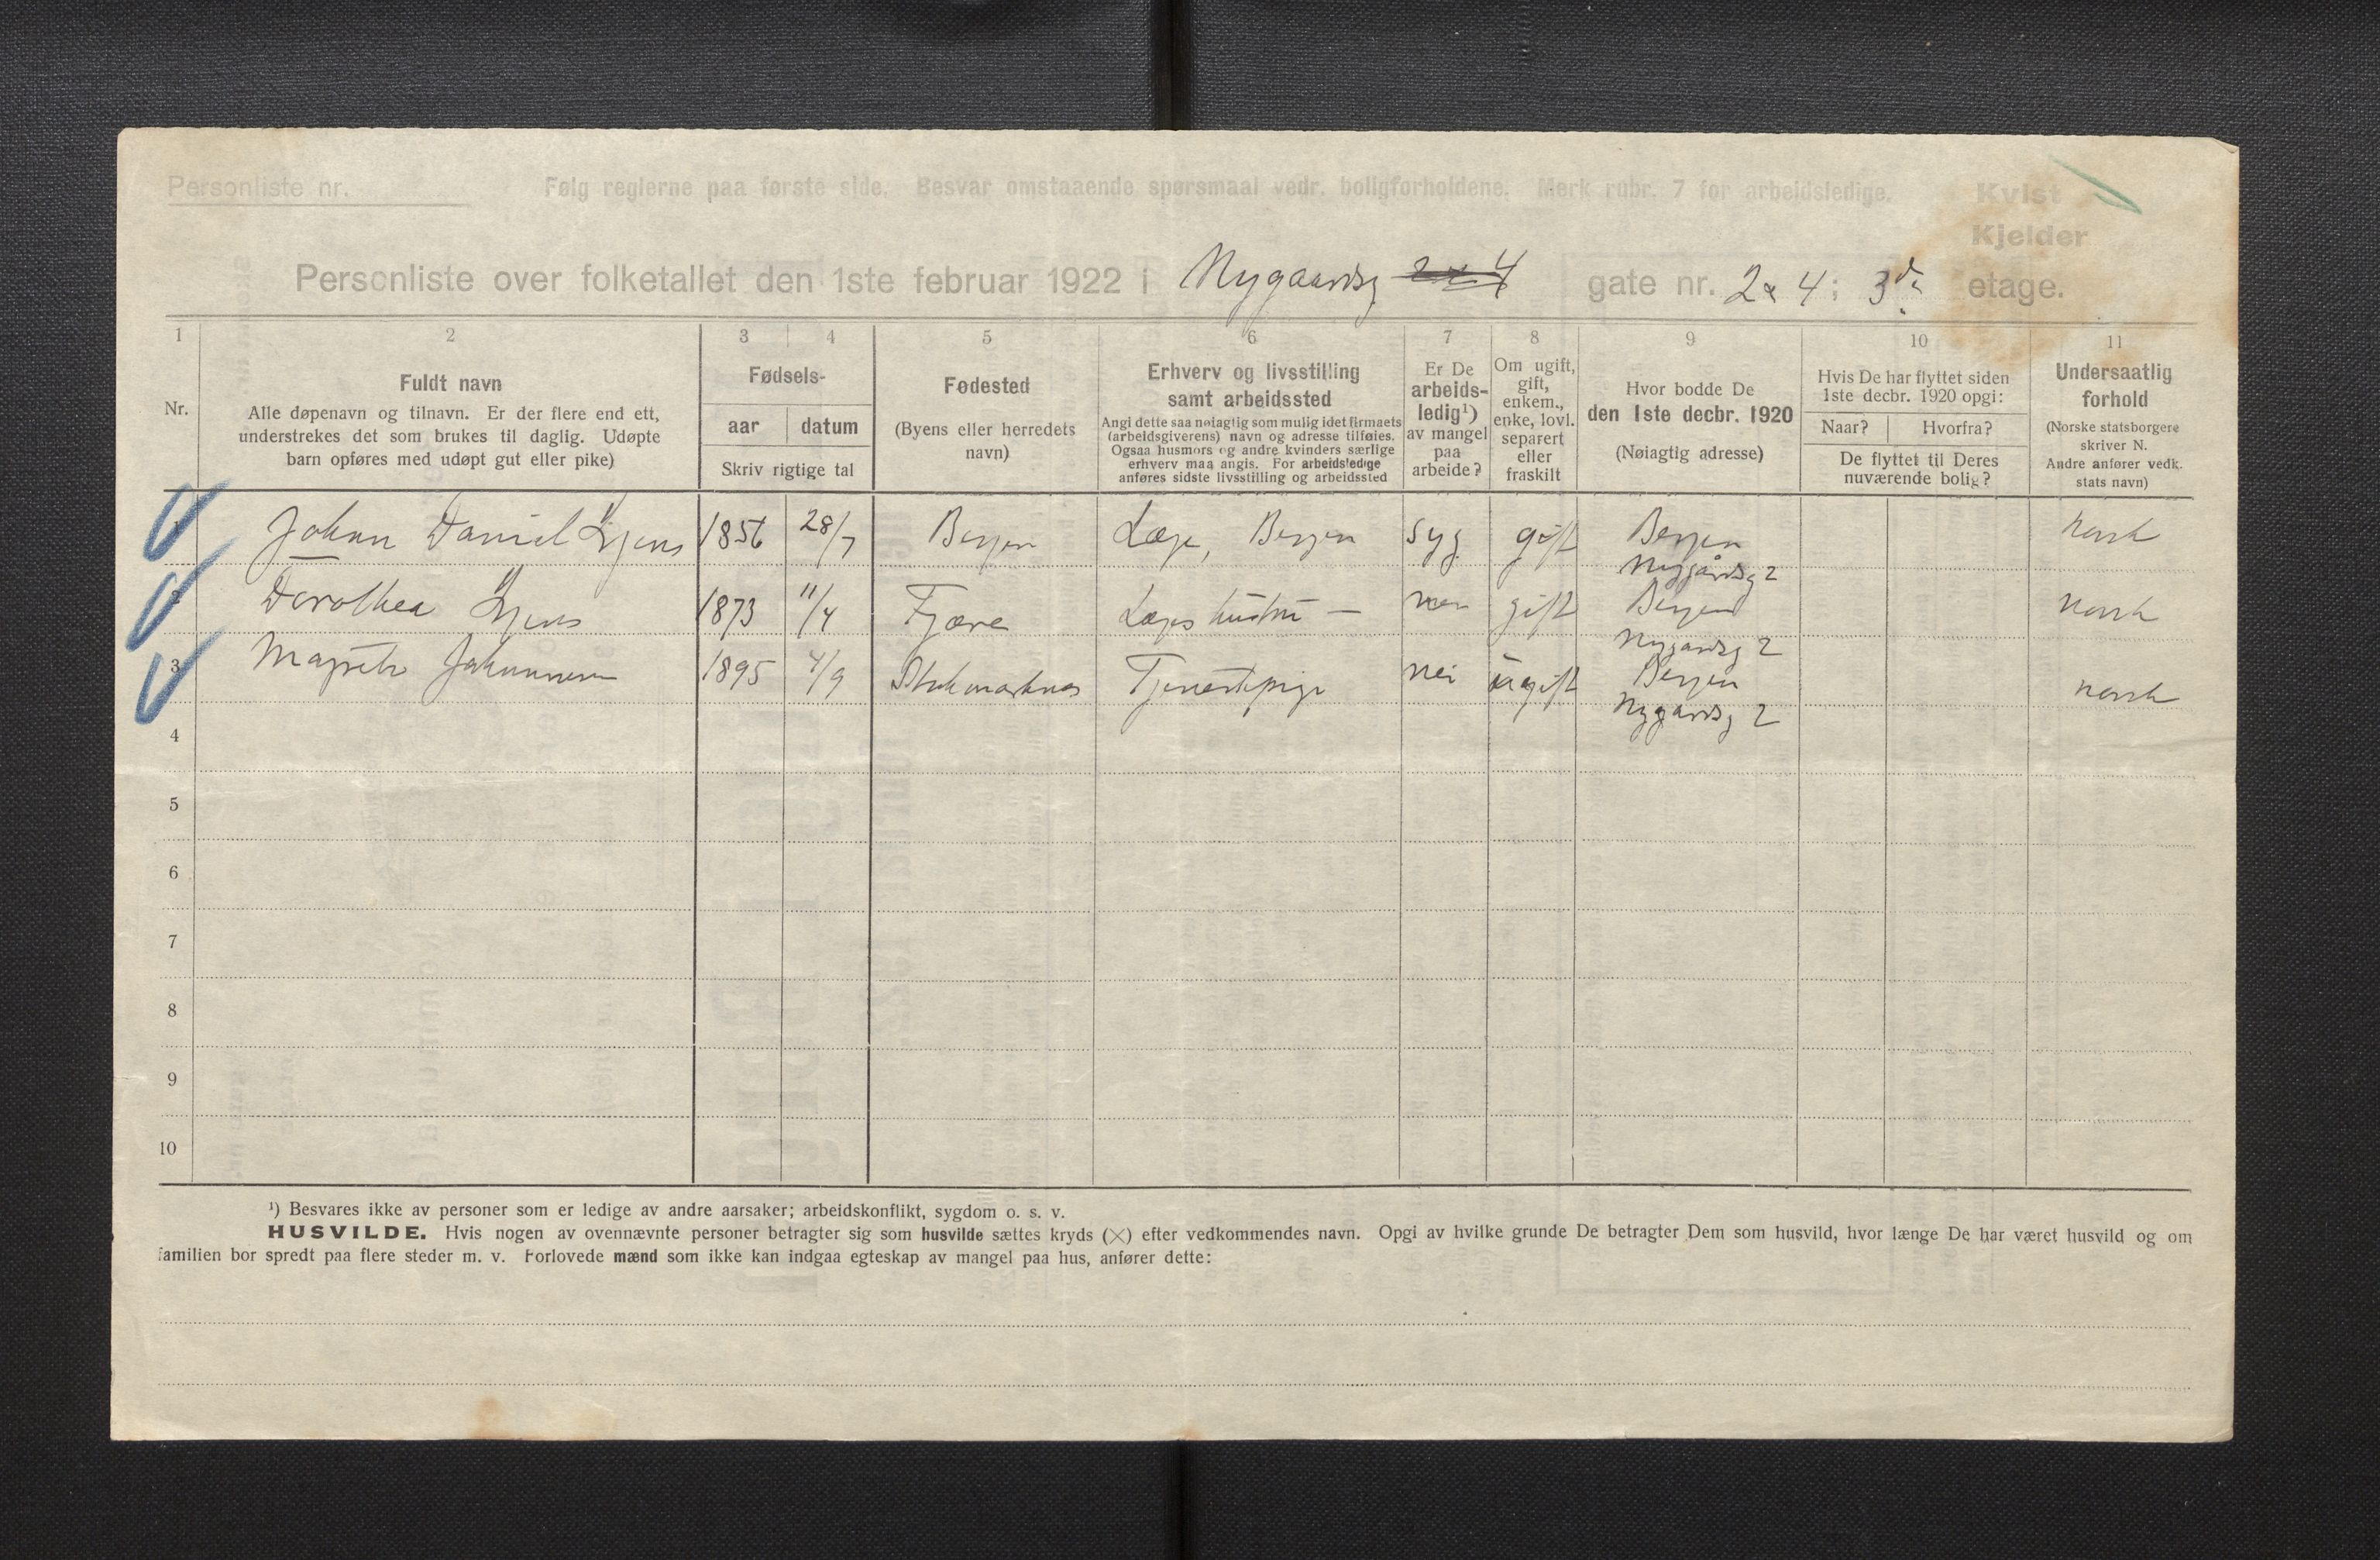 Personliste nr. Følg reglerne paa første side. Besvar omstaaende spørsmaal vedr. boligforholdene. Merk rubr. 7 for arbeidsledige. Kvist
Kjelder
Personliste over folketallet den 1ste februar 1922 i Nygaardsg gate nr. 2 & 4; 3de etage.
1 2 3 4 5 6 7 8 9 10 11
Nr.
Fuldt navn
Alle døpenavn og tilnavn. Er der flere end ett,
understrekes det som brukes til daglig. Udøpte
barn opføres med udøpt gut eller pike)
Fødsels-
aar datum
Skriv rigtige tal
Fødested
(Byens eller herredets
navn)
Erhverv og livsstilling
samt arbeidssted
Angi dette saa nøiagtig som mulig idet firmaets
(arbeidsgiverens) navn og adresse tilføies.
Ogsaa husmors og andre kvinders særlige
erhverv maa angis. For arbeidsledige
anføres sidste livsstilling og arbeidssted
Er De
arbeids-
ledig¹)
av mangel
paa
arbeide?
Om ugift,
gift,
enkem.,
enke, lovl.
separert
eller
fraskilt
Hvor bodde De
den 1ste decbr. 1920
(Nøiagtig adresse)
Hvis De har flyttet siden
1ste decbr. 1920 opgi:
Naar? Hvorfra?
De flyttet til Deres
nuværende bolig?
Undersaatlig
forhold
(Norske statsborgere
skriver N.
Andre anfører vedk.
stats navn)
1 Johan Daniel 1856 28/7 Bergen Læge, Bergen syg gift Bergen norsk
Nygårdsg 2
2 Dorothea 1873 11/4 Fjære Læges hustru — nei gift Bergen norsk
Nygardsg 2
3 Magrete Johannesen 1895 4/9 Stokmarknes Tjenestepige nei ugift Bergen norsk
Nygårdsg 2
4
5
6
7
8
9
10
¹) Besvares ikke av personer som er ledige av andre aarsaker; arbeidskonflikt, sygdom o. s. v.
HUSVILDE. Hvis nogen av ovennævnte personer betragter sig som husvilde sættes kryds (×) efter vedkommendes navn. Opgi av hvilke grunde De betragter Dem som husvild, hvor længe De har været husvild og om
familien bor spredt paa flere steder m. v. Forlovede mænd som ikke kan indgaa egteskap av mangel paa hus, anfører dette: